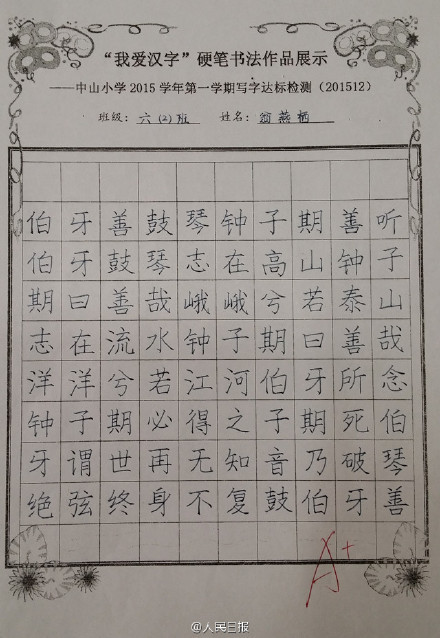 “我爱汉字”硬笔书法作品展示
——中山小学2015学年第一学期写字达标检测（201512）
班级：六(2)班 姓名：翁燕栖
伯牙善鼓琴钟子期善听
伯牙鼓琴志在高山钟子
期曰善哉峨峨兮若泰山
志在流水钟子期曰善哉
洋洋兮若江河伯牙所念
钟子期必得之子期死伯
牙谓世再无知音乃破琴
绝弦终身不复鼓伯牙善
A+
@人民日报